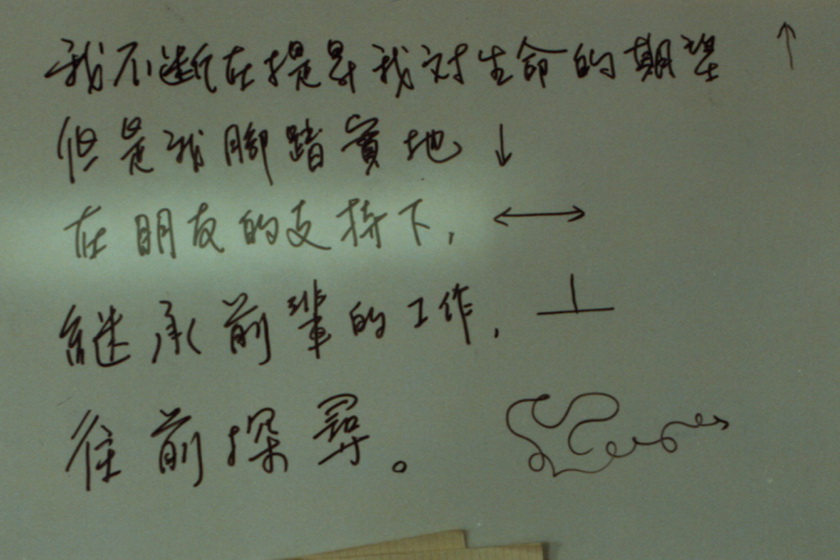 我不断在提昇我对生命的期望 ↑
但是我脚踏實地 ↓
在朋友的支持下, ↔
継承前輩的工作, ⊥
往前探尋。